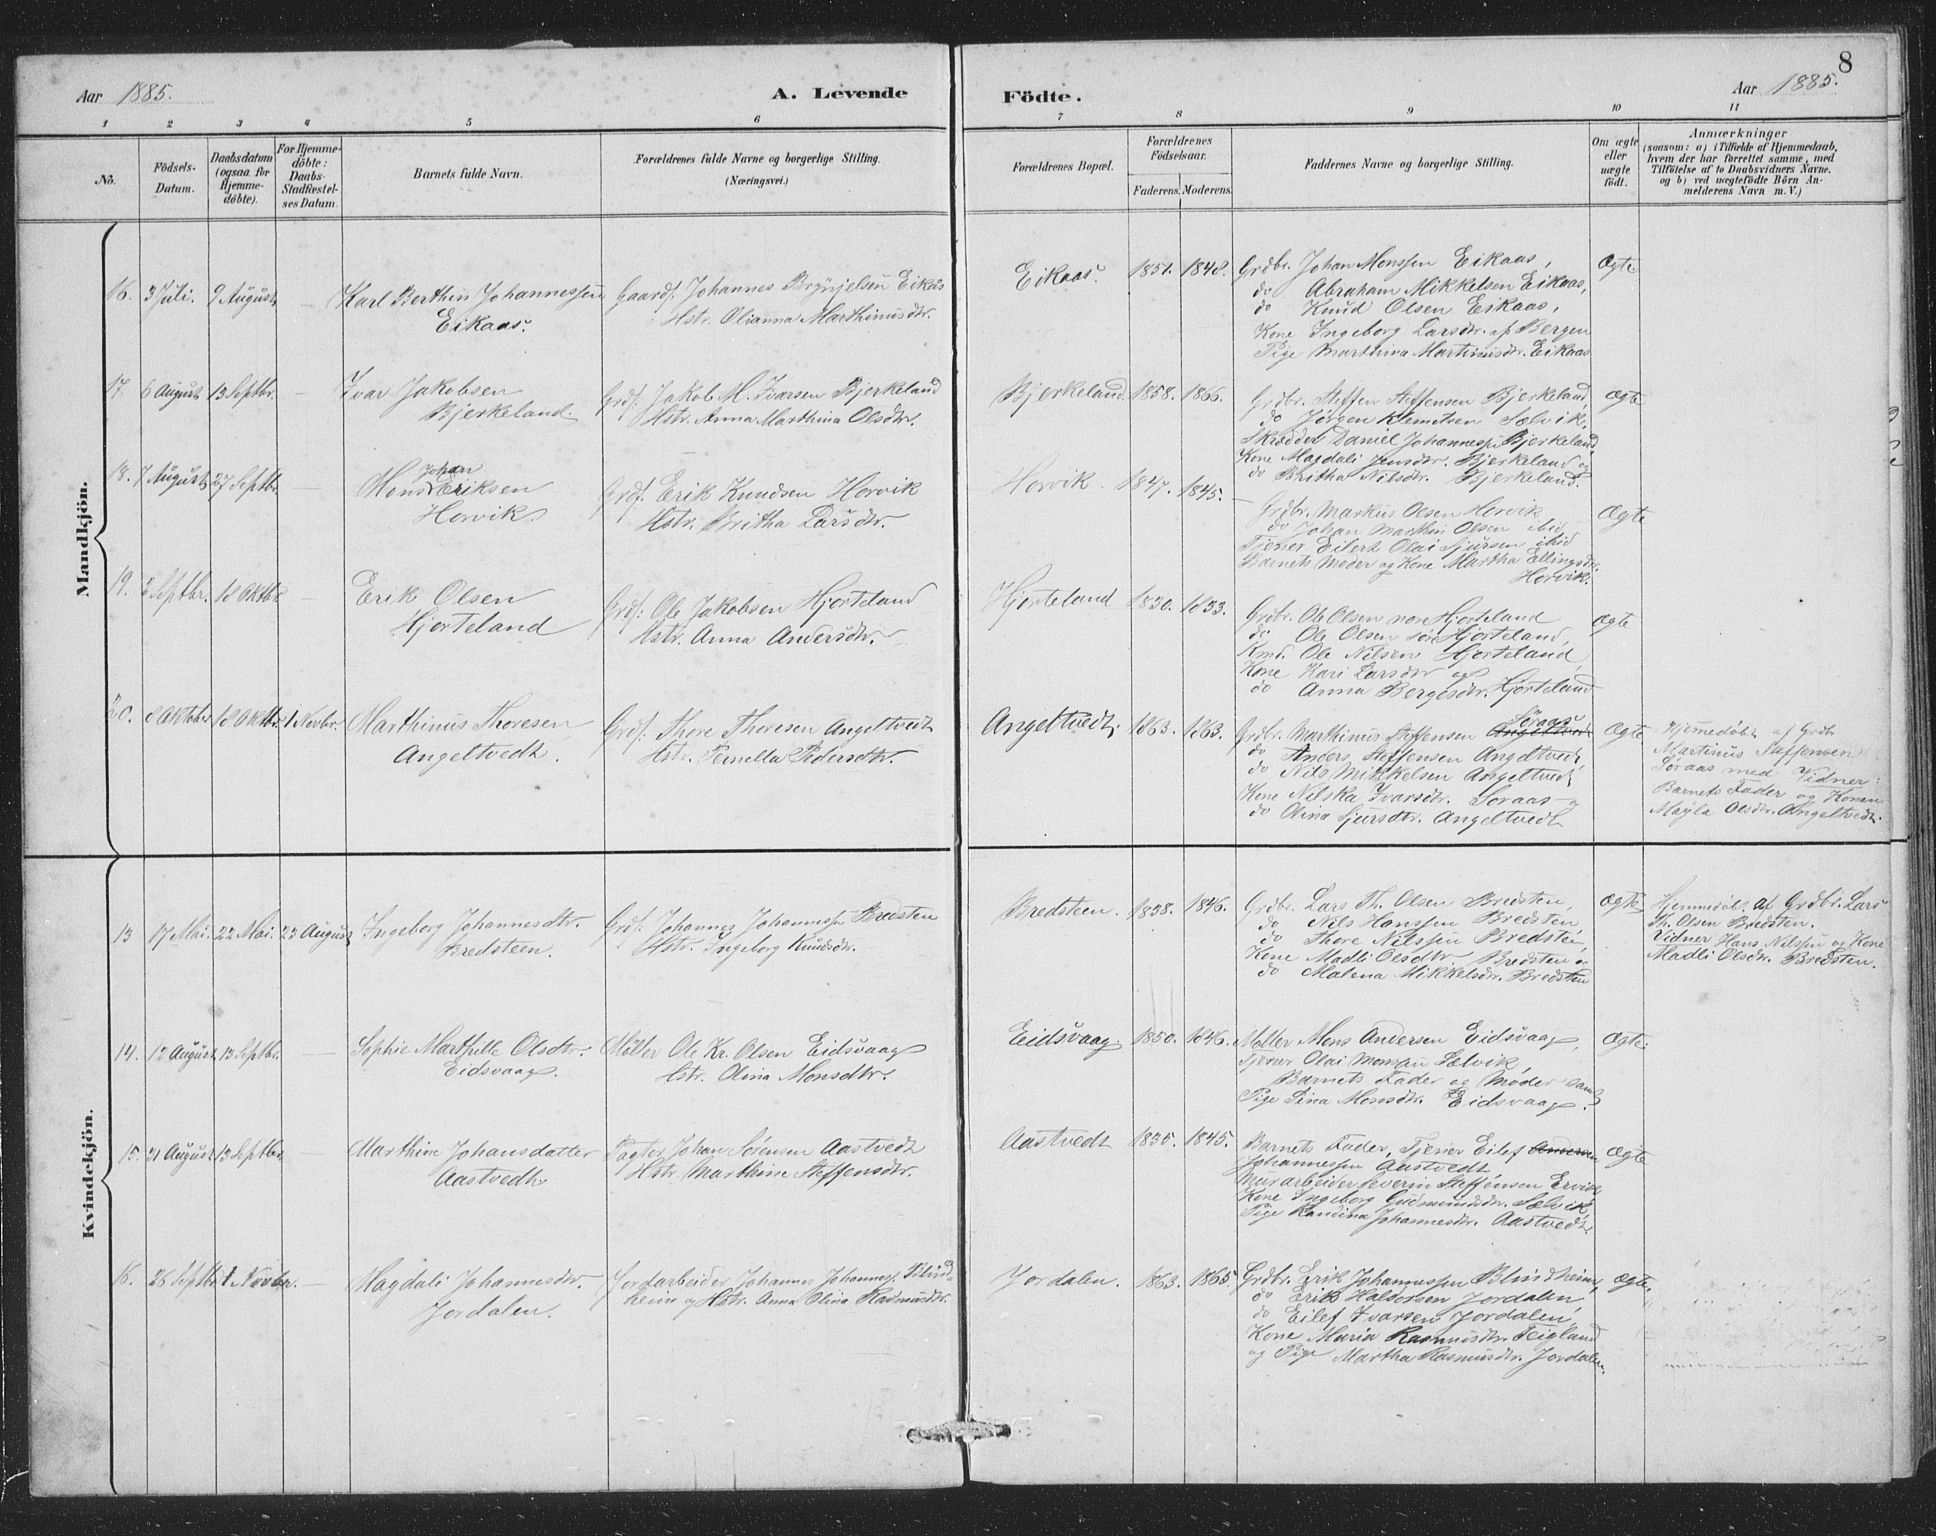 8
Aar 1885.
A. Levende
Födte.
Aar 1885.
1 2 3 4 5 6 7 8 9 10 11
No.
Födsels-
Datum.
Daabsdatum
(ogsaa for
Hjemme-
döbte).
For Hjemme-
döbte:
Daabs-
Stadfæstel-
ses Datum.
Barnets fulde Navn.
Forældrenes fulde Navne og borgerlige Stilling.
(Næringsvei.)
Forældrenes Bopæl.
Forældrenes
Födselsaar.
Faderens. Moderens.
Faddernes Navne og borgerlige Stilling.
Om ægte
eller
uægte
födt.
Anmærkninger
(saasom: a) i Tilfælde af Hjemmedaab,
hvem der har forrettet samme, med
Tilföielse af to Daabsvidners Navne.
og b) ved uægtefödte Börn An-
melderens Navn m. V.)
Mandkjön.
16. 3 Juli. 9 August —
Karl Berthin Johannessen
Eikaas.
Gaardf. Johannes Brynjelsen Eikås
Hstr. Olianna Marthinusdtr.
Eikaas. 1851. 1848.
Grdbr. Johan Monssen Eikaas,
do Abraham Mikkelsen Eikaas,
do Knud Olsen Eikaas,
Kone Ingeborg Larsdtr. af Bergen
Pige Marthina Martinusdtr. Eikaas
Ægte
17. 6 August 13 Septbr. —
Ivar Jakobsen
Bjerkeland.
Grdf. Jakob M. Ivarsen Bjerkeland
Hstr. Anna Marthina Olsdtr.
Bjerkeland. 1858. 1866.
Grdbr. Steffen Steffensen Bjerkeland,
do Jørgen Klemetsen Selvik,
Skrædder Daniel Johannessen Bjerkeland,
Kone Magdali Jensdtr. Bjerkeland og
do Britha Nilsdtr. Bjerkeland.
Ægte
18. 7 August 27 Septbr. —
Johan
Mons Eriksen
Horvik.
Grdf. Erik Knudsen Horvik
Hstr. Britha Larsdtr.
Horvik. 1847. 1845.
Grdbr. Markus Olsen Horvik
do Johan Marthin Olsen ibid
Tjener Eilert Olai Sjursen ibid
Barnets Moder og Kone Martha Ellingsdtr.
Horvik.
Ægte
19. 2 Septbr. 18 Oktbr. —
Erik Olsen
Hjorteland
Grdf. Ole Jakobsen Hjorteland
Hstr. Anna Andersdtr.
Hjorteland 1830. 1833.
Grdbr. Ole Olsen nore Hjorteland
do Ole Olsen søre Hjorteland,
Kmd. Ole Nilsen Hjorteland,
Kone Kari Larsdtr og
do Anna Bergesdtr. Hjorteland
Ægte
20. 8 Oktober 18 Oktbr. 1 Novbr.
Marthinus Thoresen
Angeltvedt.
Grdf. Thore Thoresen Angeltvedt
Hstr. Pernella Pedersdtr.
Angeltvedt. 1863. 1863.
Søraas
Grdbr. Marthinus Steffensen Angeltvedt
do Anders Steffensen Angeltvedt,
do Nils Mikkelsen Angeltvedt
Kone Nilska Ivarsdtr. Soraas og
do Olina Sjursdtr. Angeltvedt
Ægte
Hjemmedøbt af Grdbr.
Martinus Steffensen
Søraas med Vidner:
Barnets Fader og Konen
Mayla Olsdtr. Angeltvedt.
Kvindekjön.
13 17 Mai. 22 Mai. 23 August
Ingeborg Johannesdtr.
Bredsteen.
Grdf. Johannes Johannessen Bredsten
Hstr. Ingeborg Knudsdtr.
Bredsteen. 1838. 1846.
Grdbr. Lars Th. Olsen Bredsten,
do Nils Hanssen Bredsten
do Thore Nilssen Bredsten,
Kone Madli Olsdtr. Bredsten og
do Malena Mikkelsdtr. Bredsten
Ægte
Hjemmedøbt af Grdbr. Lars
Th. Olsen Bredsten.
Vidner Hans Nilssen og Kone
Madli Olsdtr. Bredsten.
14. 12 August 13 Septbr. —
Sophie Marthille Olsdtr.
Eidsvaag.
Møller Ole Kr. Olsen Eidsvaag
Hstr. Olina Monsdtr.
Eidsvaag. 1850. 1846.
Møller Mons Andersen Eidsvaag,
Tjener Olai Monssen Selvik,
Barnets Fader og Moder samt
Pige Sina Monsdtr. Eidsvaag.
Ægte.
15. 21 August 13 Septbr. —
Marthine Johansdatter
Aastvedt.
Pagter Johan Sørensen Aastvedt
Hstr. Marthine Steffensdtr.
Aastvedt 1835. 1845.
Barnets Fader, Tjener Eilef Andersen
Johannessen Aastvedt
Murarbeider Severin Steffensen Ervik
Kone Ingeborg Gudmundsdtr. Selvik,
Pige Randina Johannesdtr. Aastvedt
Ægte
16. 26 Septbr 1 Novbr. —
Magdali Johannesdtr.
Jordalen.
Jordarbeider Johannes Johannessen Blind-
heim og Hstr. Anna Olina Rasmusdtr.
Jordalen. 1863. 1865
Grdbr. Erik Johannessen Blindheim,
do Erik Halvorsen Jordalen,
do Eilef Ivarsen Jordalen,
Kone Maria Rasmusdtr. Teigland
og Pige Martha Rasmusdtr. Jordalen.
Ægte,